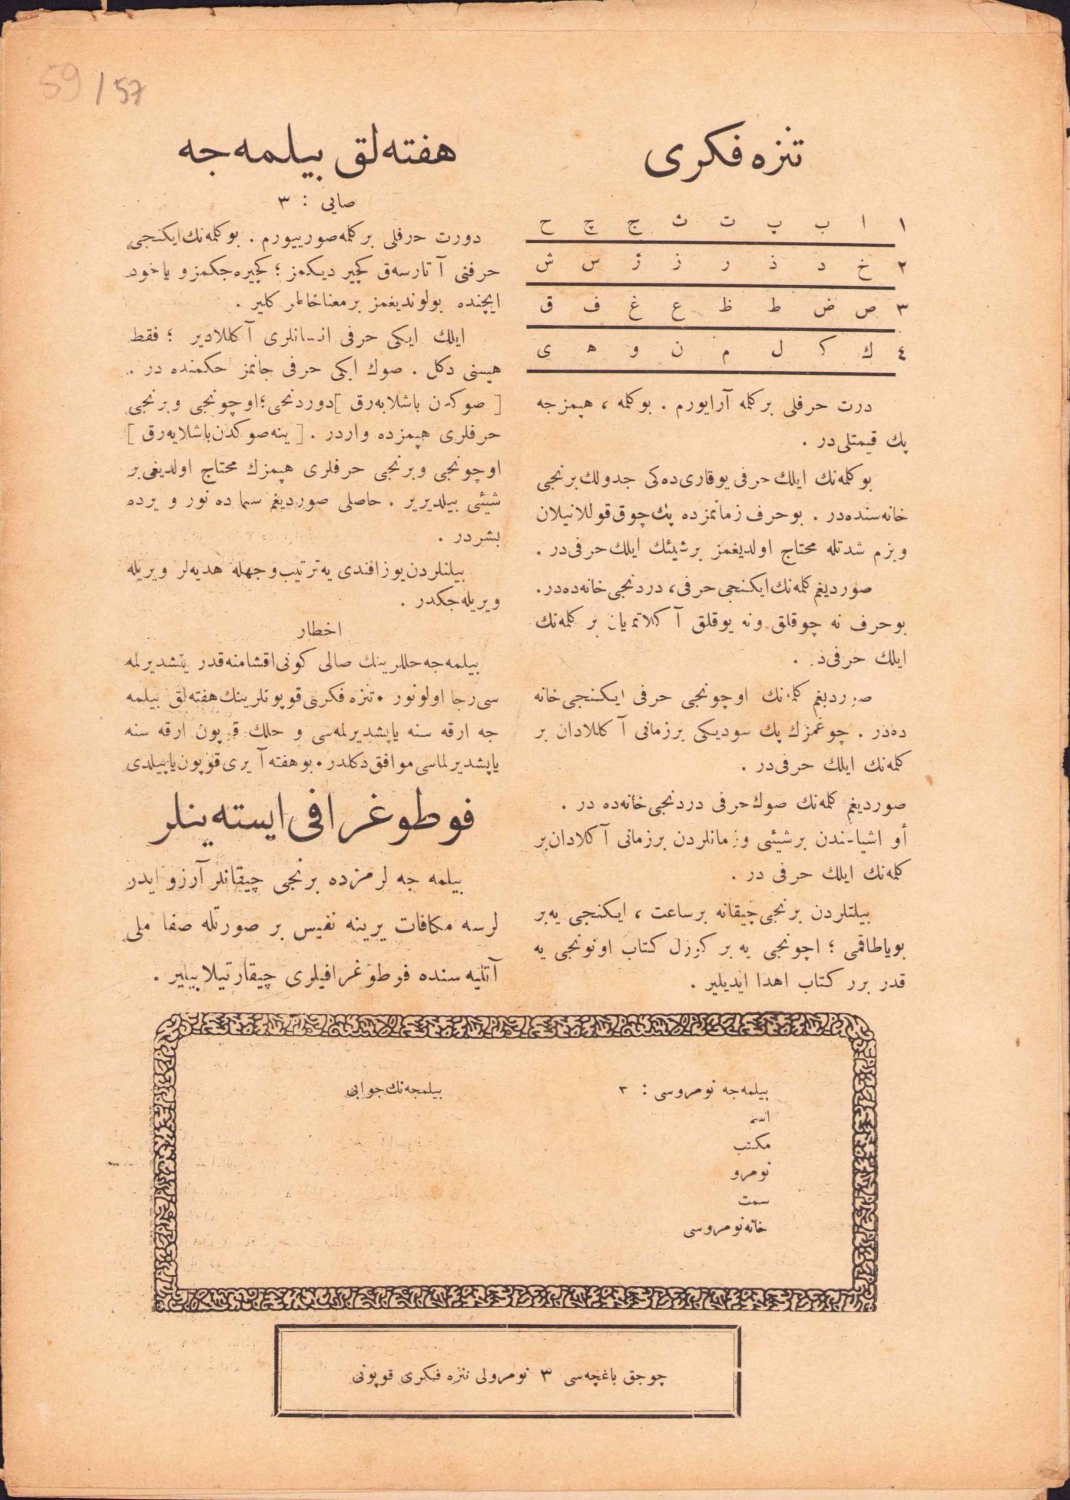 59/57
تنزه فکری
١ ا ب پ ت ث ج چ ح
٢ خ د ذ ر ز ژ س ش
٣ ص ض ط ظ ع غ ف ق
٤ ك گ ل م ن و ه ی
درت حرفلی برکلمه آرایورم . بوکلمه ، هپمزجه
پك قیمتلی‌در .
بوکلمه‌نك ایلك حرفی یوقاری‌ده‌کی جدولك برنجی
خانه‌سنده‌در . بوحرف زمانمزده پك چوق قوللانیلان
وبزم شدتله محتاج اولدیغمز برشیئك ایلك حرفی‌در .
صوردیغم کلمه‌نك ایکنجی حرفی، دردنجی خانه‌ده‌در.
بوحرف نه چوقلق ونه یوقلق آکلاتمیان بر کلمه‌نك
ایلك حرفی‌در .
صوردیغم کلمه‌نك اوچونجی حرفی ایکنجی خانه
ده‌در . چوغمزك پك سودیکی برزمانی آکلادان بر
کلمه‌نك ایلك حرفی‌در .
صوردیغم کلمه‌نك صوك حرفی دردنجی خانه‌ده در .
أو اشیاسندن برشیئی وزمانلردن برزمانی آکلادان بر
کلمه‌نك ایلك حرفی در .
بیلنلردن برنجی چیقانه برساعت ، ایکنجی یه بر
بویاطاقمی ؛ اچونجی یه بر کوزل کتاب اونونجی یه
قدر برر کتاب اهدا ایدیلیر .
هفته‌لق بیلمه‌جه
صایی : ٣
دورت حرفلی برکلمه صورییورم . بوکلمه‌نك ایکنجی
حرفنی آتارسه‌ق کچیر دیکمز ؛ کچیره‌جکمز و یاخود
ایچنده بولوندیغمز برمعنا خاطر کلیر .
ایلك ایکی حرفی انسانلری آکللادیر ؛ فقط
هپسنی دکل . صوك ایکی حرفی جانمز حکمنده در .
[ صوکدن باشلایه‌رق ] دوردنجی؛ اوچونجی و برنجی
حرفلری هپمزده واردر . [ ینه صوکدن باشلایه‌رق ]
اوچونجی وبرنجی حرفلری هپمزك محتاج اولدیغی بر
شیئی بیلدیریر . حاصلی صوردیغم سماده نور و یرده
بشردر .
بیلنلردن یوز افندی یه ترتیب وجهله هدیه‌لر ویریله
ویریله‌جکدر .
اخطار
بیلمه‌جه حللرینك صالی کونی اقشامنه قدر یتشدیرلمه
سی رجا اولونور . تنزه فکری قوپونلرینك هفته‌لق بیلمه
جه ارقه سنه یاپشدیرلمه‌سی و حلك قوپون ارقه سنه
یاپشدیرلماسی موافق دکلدر . بو هفته آیری قوپون یاپیلدی
فوطوغرافی ایسته‌ینلر
بیلمه جه لرمزده برنجی چیقانلر آرزو ایدر
لرسه مکافات یرینه نفیس بر صورتله صفا ملی
آتلیه سنده فوطوغرافیلری چیقارتیلابیلیر .
بیلمه‌جه نومروسی : ٣
اسم
مکتب
نومرو
سمت
خانه نومروسی
بیلمجه‌نك جوابی
چوجق باغچه‌سی ٣ نومرولی تنزه فکری قوپونی